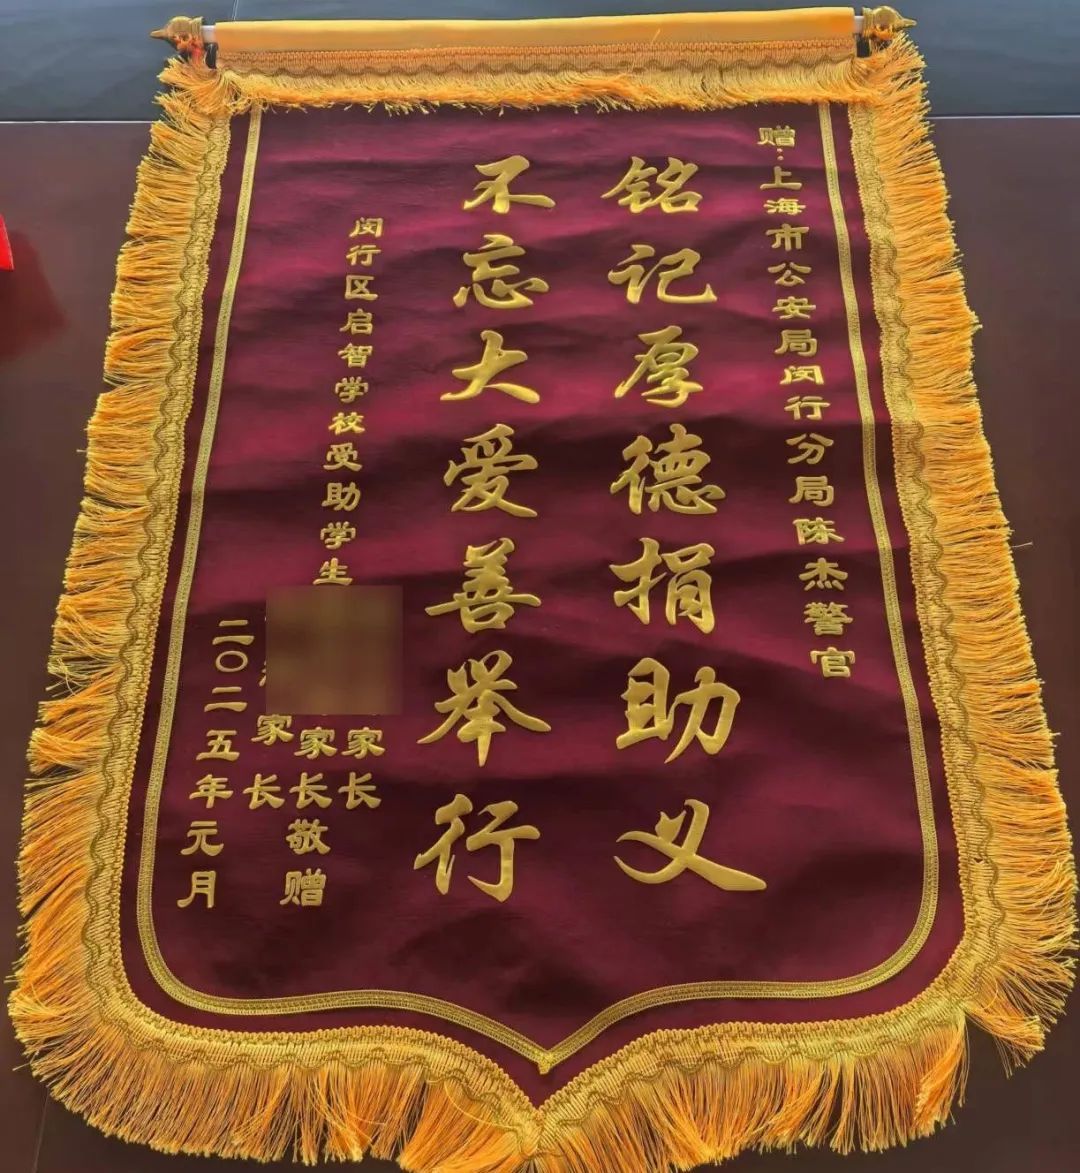 赠:上海市公安局闵行分局陈杰警官
铭记厚德捐助义
不忘大爱善举行
闵行区启智学校受助学生
家长
家长敬赠
家长
二〇二五年元月